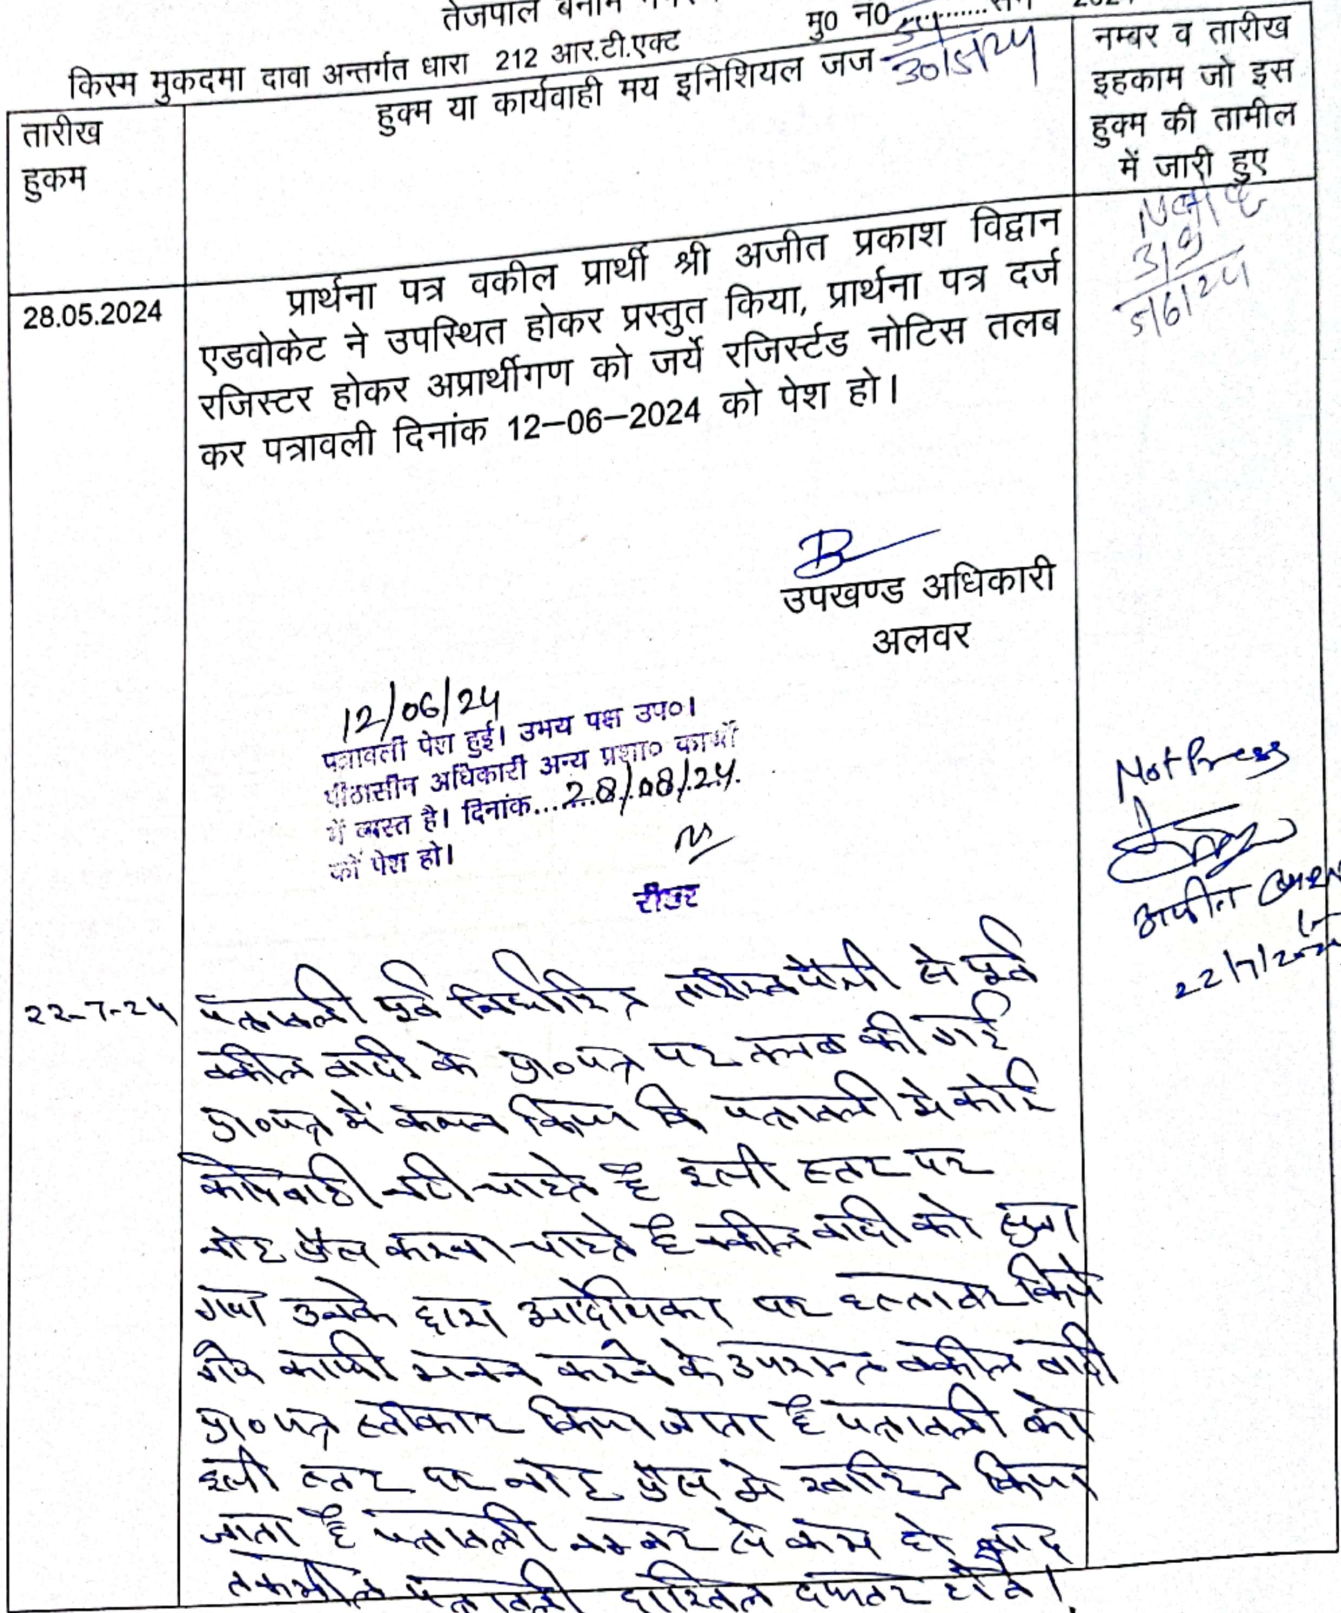 तेजपाल बनाम
मु0 न0
किस्म मुकदमा दावा अन्तर्गत धारा 212 आर.टी.एक्ट
30/5/24
तारीख हुकम
हुक्म या कार्यवाही मय इनिशियल जज
नम्बर व तारीख
इहकाम जो इस
हुक्म की तामील
में जारी हुए
319
5/6/24
28.05.2024
प्रार्थना पत्र वकील प्रार्थी श्री अजीत प्रकाश विद्वान
एडवोकेट ने उपस्थित होकर प्रस्तुत किया, प्रार्थना पत्र दर्ज
रजिस्टर होकर अप्रार्थीगण को जर्ये रजिर्स्टड नोटिस तलब
कर पत्रावली दिनांक 12-06-2024 को पेश हो।
उपखण्ड अधिकारी
अलवर
12/06/24
पत्रावली पेश हुई। उभय पक्ष उप०।
पीठासीन अधिकारी अन्य प्रशा० कार्यों
में व्यस्त है। दिनांक...28/08/24.
को पेश हो।
रीडर
Not Press
अजीत
22/7/2024
22-7-24
पत्रावली पूर्व निर्धारित तारीख पेशी से पूर्व
वकील वादी के प्रा०पत्र पर तलब की गई
प्रा०पत्र में कथन किया कि पत्रावली में कोई
कार्यवाही नही चाहते है इसी स्तर पर
नोट प्रेस करना चाहते है वकील वादी को सुना
गया उनके द्वारा आदेशिका पर हस्ताक्षर किये
गये काफी मनन करने के उपरान्त वकील वादी
प्रा०पत्र स्वीकार किया जाता है पत्रावली को
इसी स्तर पर नोट प्रेस में खारिज किया
जाता है पत्रावली नम्बर से कम हो बाद
तकमील पत्रावली दाखिल दफ्तर होवे।